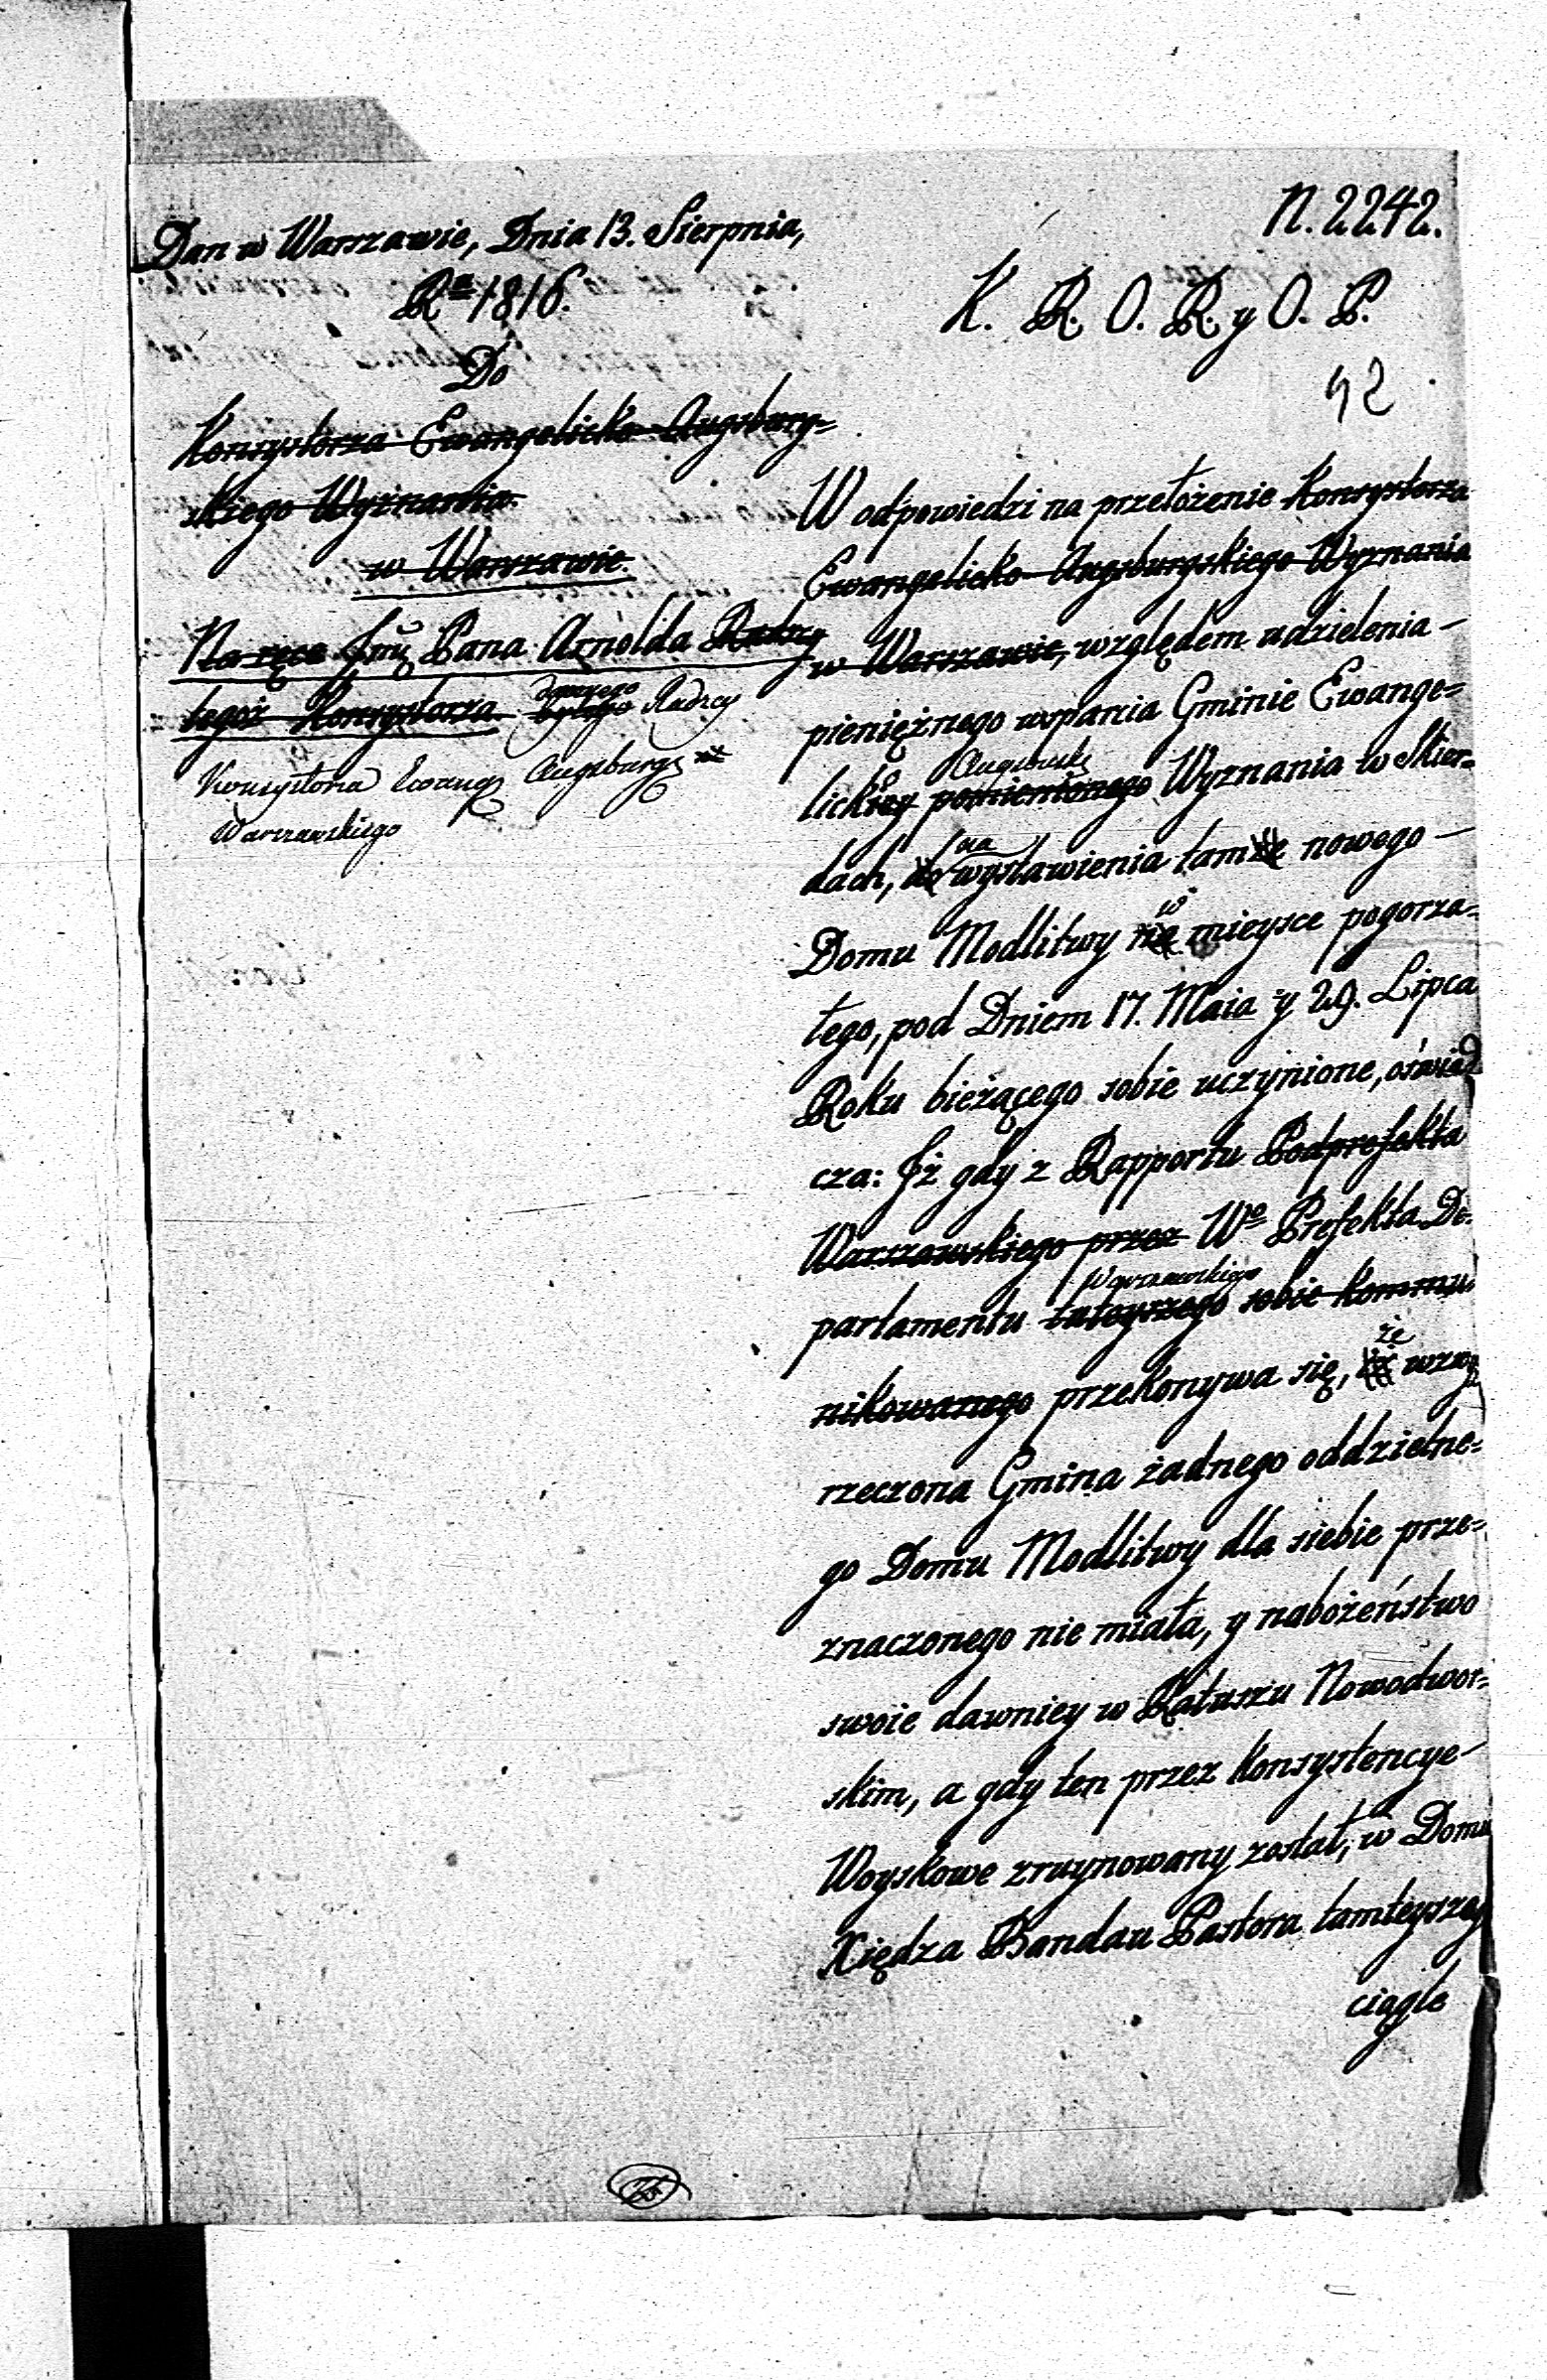 N. 2242.
Dan w Warszawie, Dnia 13. Sierpnia,
Ra 1816.
K. R. O. R. y O. P.
Do
42
Konsystorza Ewangelicko-Augsburg=
skiego Wyznania
w Warszawie.
Na ręce Jmć Pana Arnolda Radzcy
tegoż Konsystorza. byłego Radzcy
Konsystorza Ewang Augsburg
Warszawskiego
W odpowiedzi na przełożenie Konsystorza
Ewangelicko-Augsburgskiego Wyznania
w Warszawie, względem udzielenia –
pieniężnego wsparcia Gminie Ewange=
Augsbursk
lickiey pomienionego Wyznania w Skier=
na
dach, do wystawienia tamże nowego –
w
Domu Modlitwy na mieysce pogorza=
łego, pod Dniem 17. Maia y 29. Lipca
Roku bieżącego sobie uczynione, oświad
cza: Iż gdy z Rapportu Podprefekta
Warszawskiego przez Wo Prefekta De=
Warszawskiego
partamentu tuteyszego sobie kommu
że
nikowanego przekonywa się, wzwy
rzeczona Gmina żadnego oddzielne=
go Domu Modlitwy dla siebie prze=
znaczonego nie miała, y nabożeństwo
swoie dawniey w Ratuszu Nowodwor=
skim, a gdy ten przez konsystencye –
Woyskowe zruynowany został, w Domu
Xiędza Bandau Pastora tamteyszey
ciągle